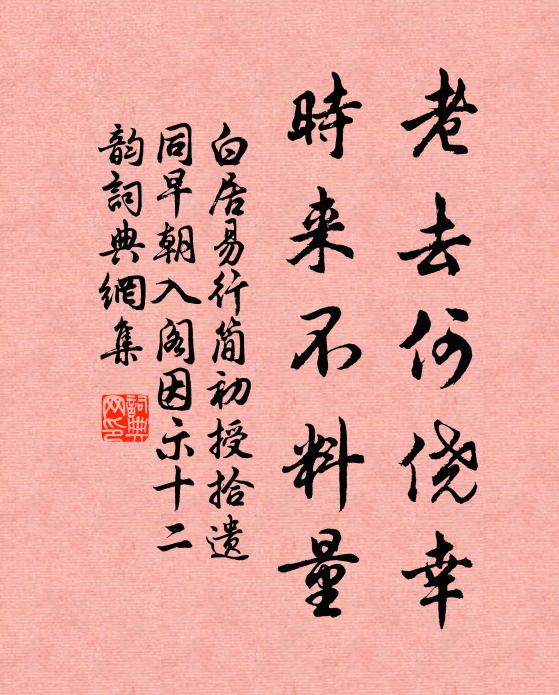 老去何僥幸
時来不料量
白居易行简初授拾遗
同早朝入阁因示十二
韵詞典網集
詞典網印